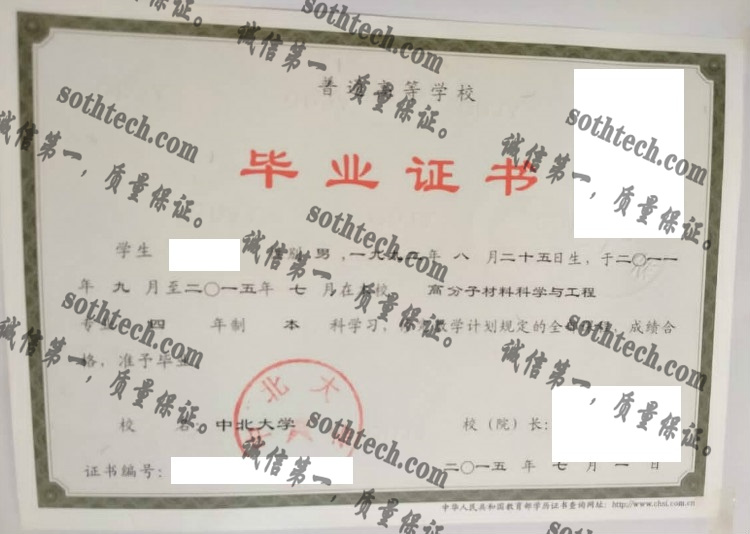 普通高等学校
毕业证书
学生 性别 男，一九九 年 八 月二十五日生，于二〇一一
年 九 月至二〇一五年 七 月在本校 高分子材料科学与工程
专业 四 年制 本 科学习， 教学计划规定的全部课程，成绩合
格，准予毕业
校 名： 中北大学 校（院）长：
证书编号： 二〇一五 年 七 月 一 日
中华人民共和国教育部学历证书查询网址：http://www.chsi.com.cn
中北大
sothtech.com
诚信第一，质量保证。
sothtech.com
诚信第一，质量保证。
sothtech.com
诚信第一，质量保证。
sothtech.com
诚信第一，质量保证。
sothtech.com
诚信第一，质量保证。
sothtech.com
诚信第一，质量保证。
sothtech.com
诚信第一，质量保证。